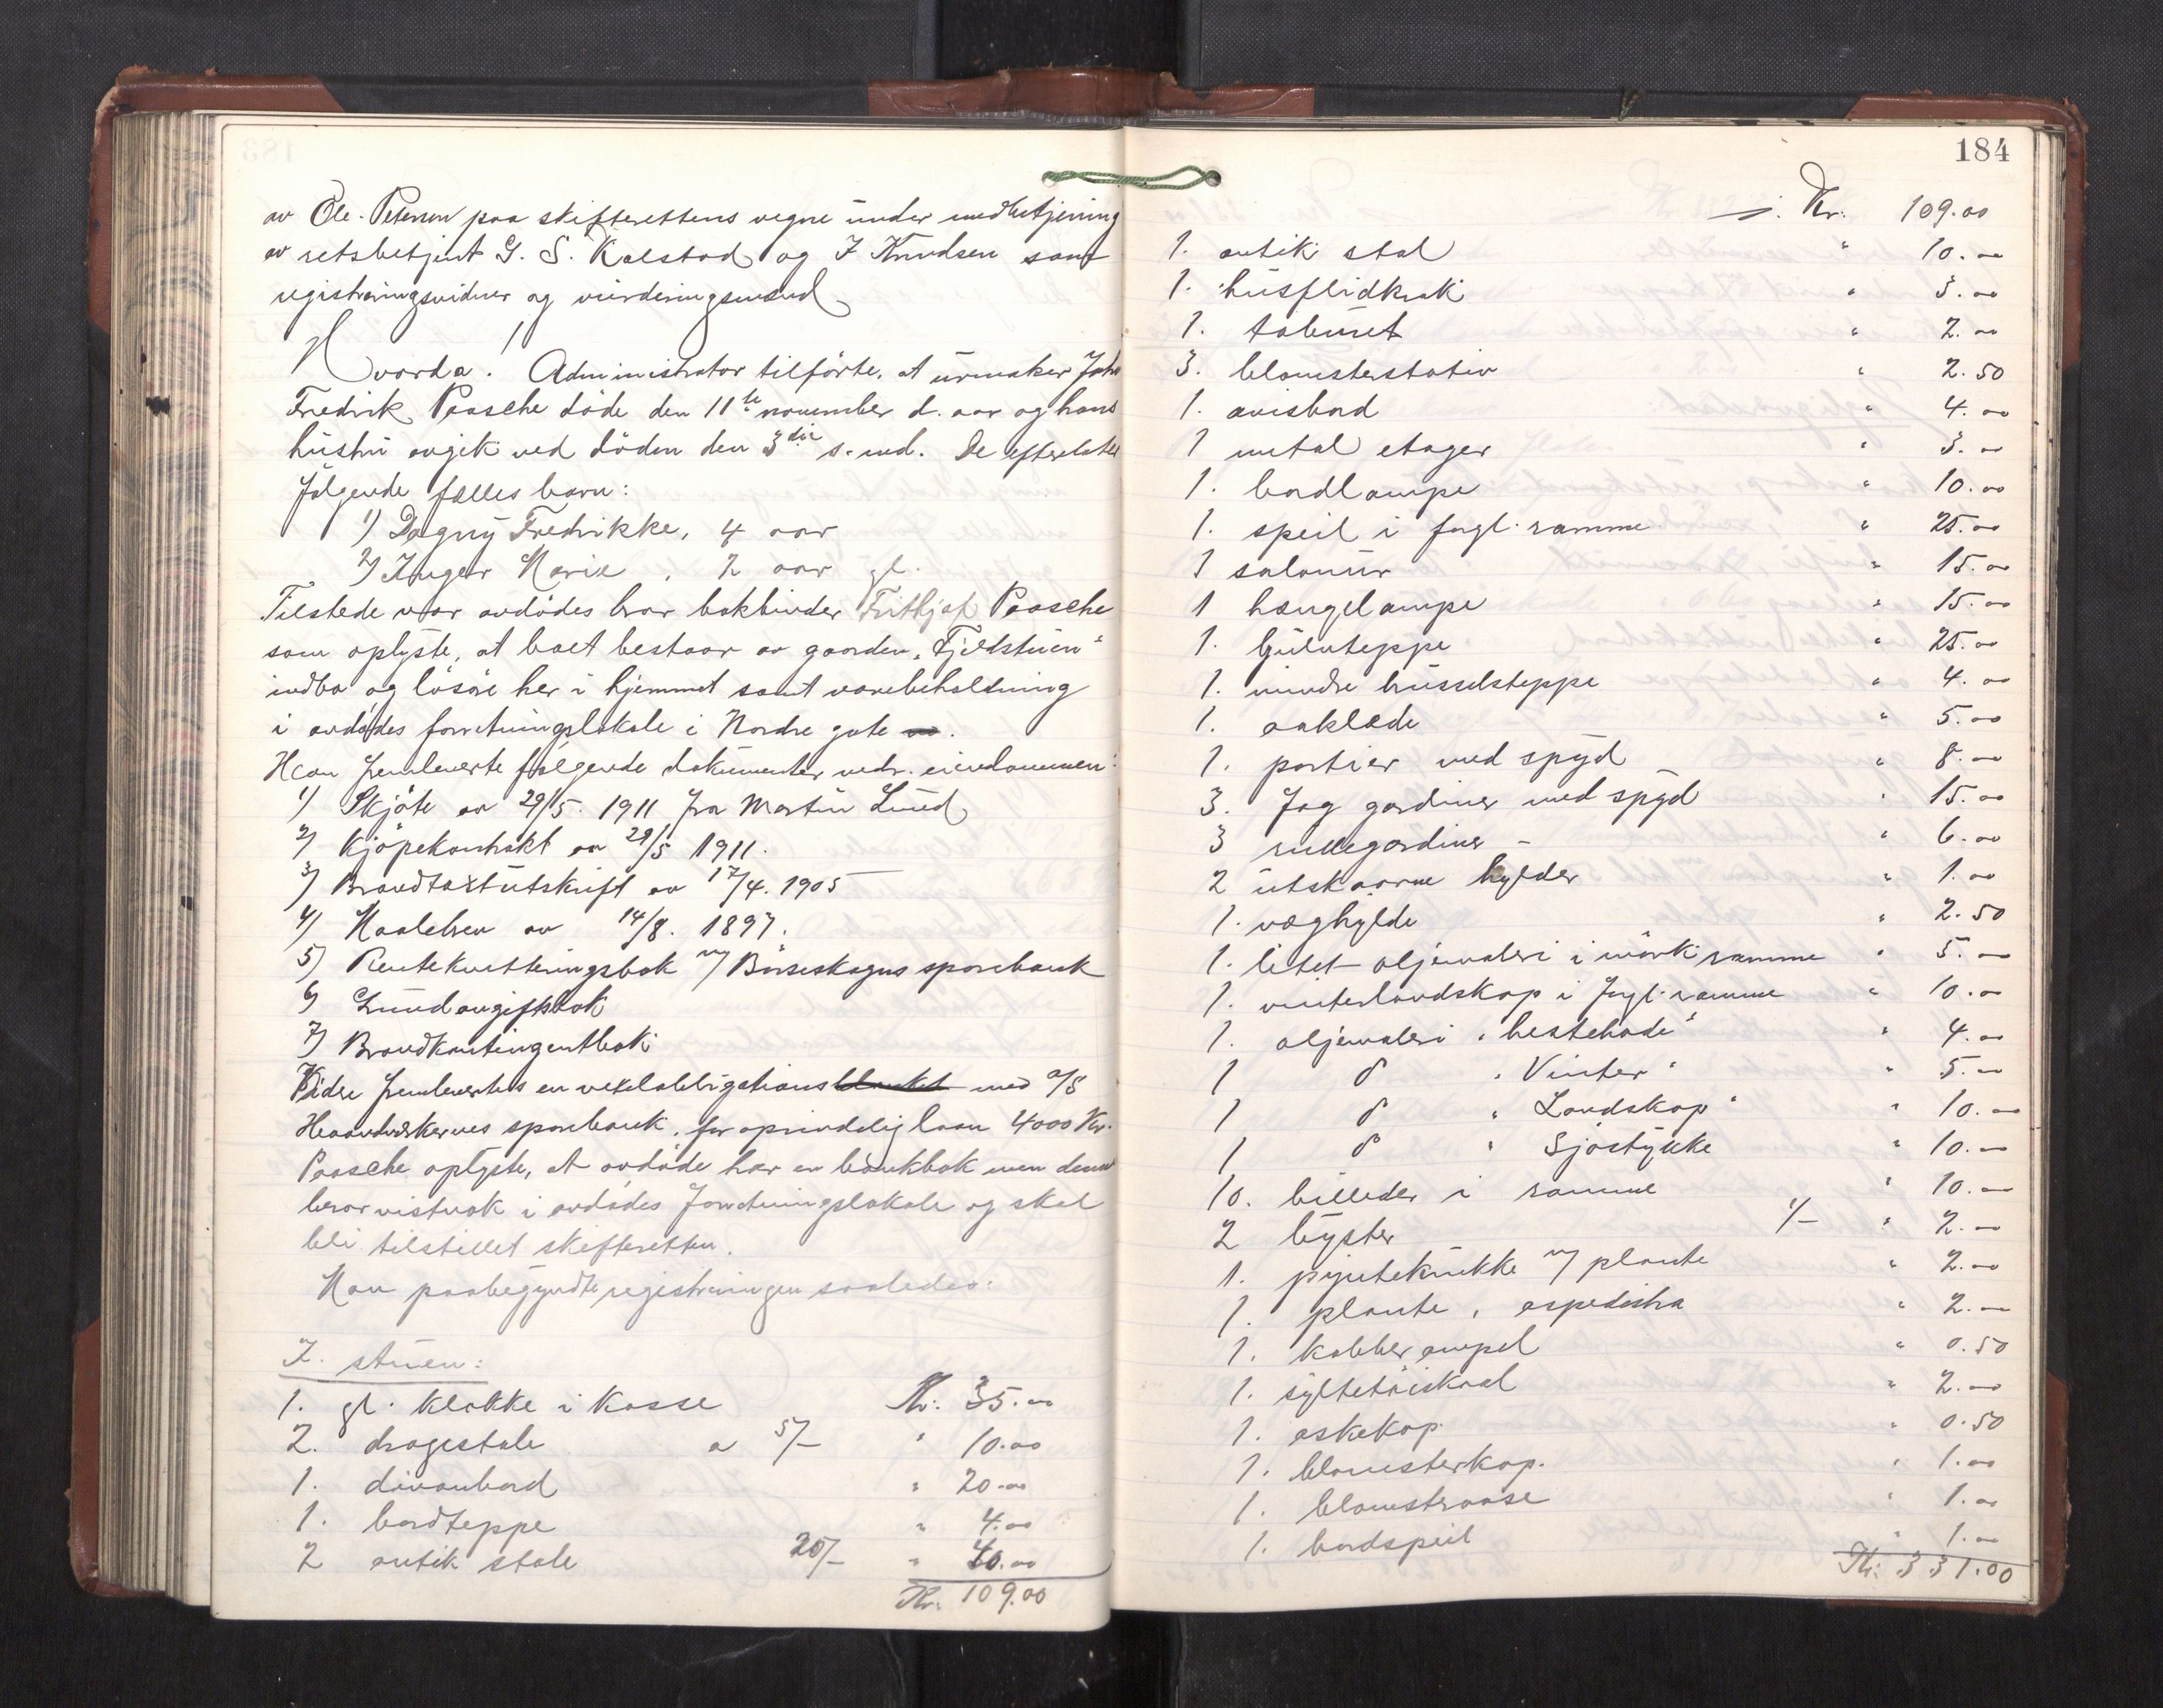 av Ole Peterson paa skifterettens vegne under medbetjening
av retsbetjent G. S. Kalstad og I Knudsen samt
registreringsvidner og vurderingsmænd
Hvorda! Administrator tilførte, at urmaker John
Fredrik Paasche døde den 11te november d. aar og hans
hustru avgik ved døden den 3die s. md. De efterlater
følgende fælles barn:
1) Dagny Fredrikke, 4 aar
2) Inger Marie, 2 aar gl.
Tilstede var avdødes bror bokbinder Frithjof Paasche
som oplyste, at boet bestaar av gaarden „Fjeldstuen"
indbo og løsøre her i hjemmet samt varebeholdning
i avdødes forretningslokale i Nordre gate.
Han fremleverte følgende dokumenter vedr. eiendommen:
1) Skjøte av 29/5. 1911 fra Martin Lund
2) Kjøpekontrakt av 29/5 1911.
3) Brandtaxtutskrift av 17/4. 1905
4) Maalebrev av 14/8. 1897.
5) Rentekvitteringsbok m/ Børseskogns sparebank
6) Grundavgiftsbok
7) Brandkontingentbok
Videre fremlevertes en vexelobligations blanket med a/s
Haandverkernes sparebank, for oprindelig laan 4000 Kr.
Paasche oplyste, at avdøde har en bankbok men denne
beror vistnok i avdødes forretningslokale og skal
bli tilstillet skifteretten.
Man paabegyndte registreringen saaledes:
I. stuen:
1. gl. klokke i kasse Kr. 35.00
2. dragestole a 5/- " 10.00
1. divanbord " 20.00
1. bordteppe " 4.00
2 antik stole 20/- " 40.00
Kr. 109.00
184
Kr. 109.00
1. antik stol " 10.00
1. husflidkrak " 3.00
1. taburet " 2.00
3. blomsterstativ " 2.50
1. avisbord " 4.00
1 metal etager " 3.00
1. bordlampe " 10.00
1. speil i forgl. ramme " 25.00
1 salonur " 15.00
1 hængelampe " 15.00
1. gulvteppe " 25.00
1. mindre brüsselsteppe " 4.00
1. aaklæde " 5.00
1. portier med spyd " 8.00
3. fag gardiner med spyd " 15.00
3 rullegardiner - " 6.00
2 utskaarne hylder " 1.00
1. væghylde " 2.50
1. litet oljemaleri i mørk ramme " 5.00
1. vinterlandskap i forgl. ramme " 10.00
1. oljemaleri „hestehode" " 4.00
1 do „Vinter" " 5.00
1 do „Landskap" " 10.00
1 do " Sjøstykke " 10.00
10. billeder i ramme " 10.00
2 lyster 1/- " 2.00
1. pyntekrukke m/ plante " 2.00
1. plante, aspedistra " 2.00
1. kobberampel " 0.50
1. syltetøiskaal " 2.00
1. askekop " 0.50
1. blomsterkop. " 1.00
1. blomstervase " 1.00
1. bordspeil " 1.00
Kr. 331.00